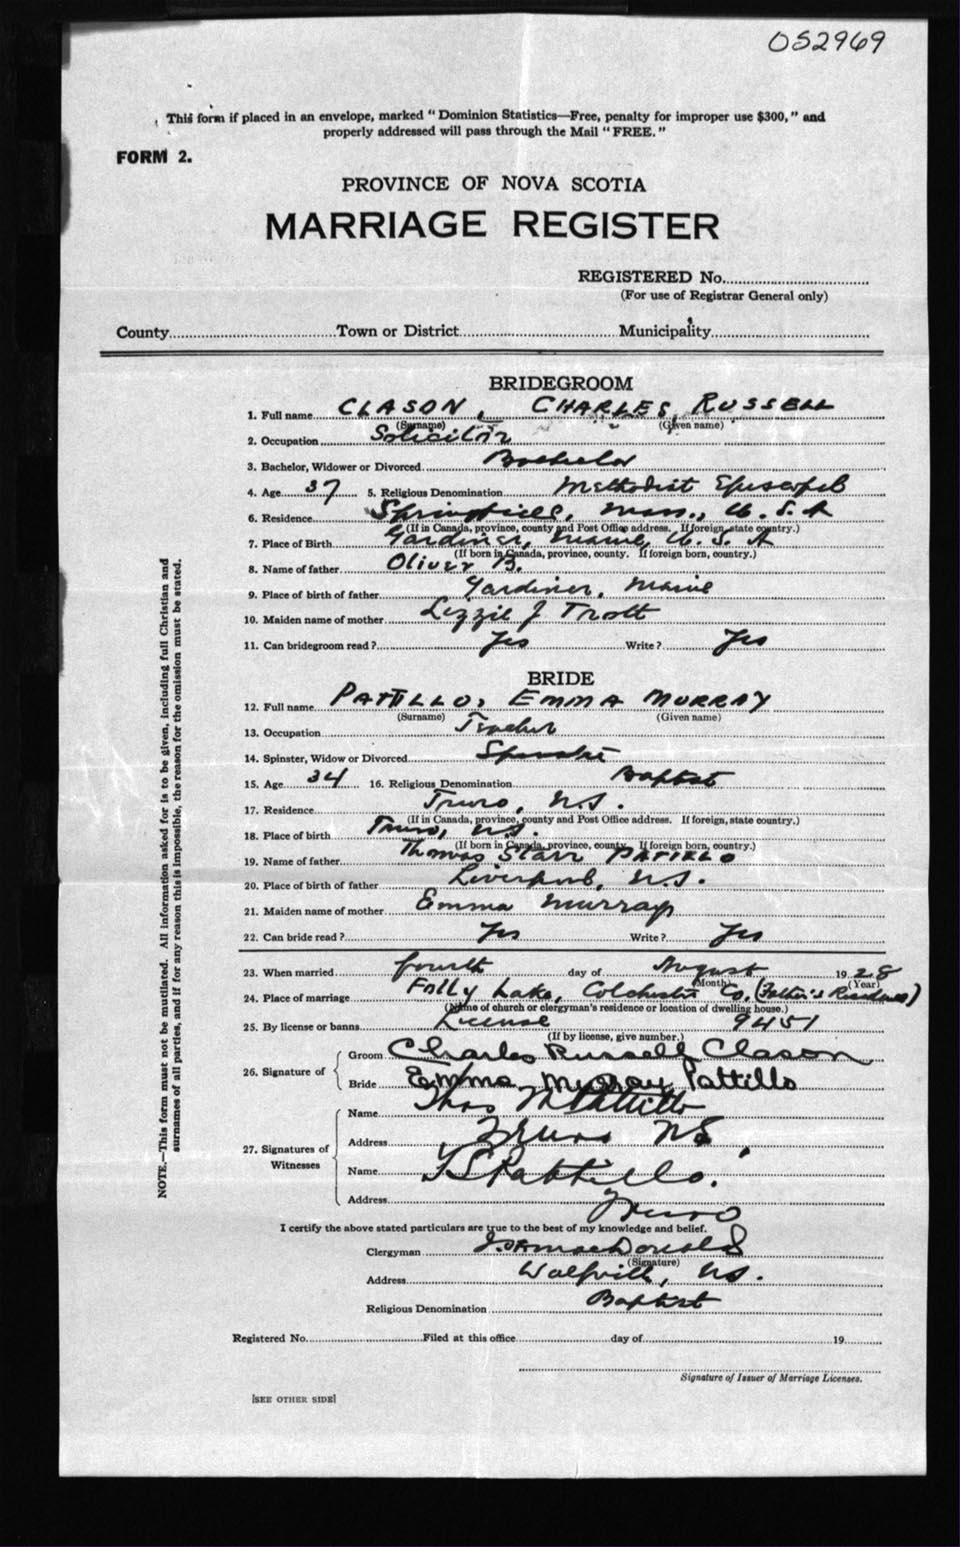 052969
This form if placed in an envelope, marked "Dominion Statistics—Free, penalty for improper use $300," and
properly addressed will pass through the Mail "FREE."
FORM 2.
PROVINCE OF NOVA SCOTIA
MARRIAGE REGISTER
REGISTERED No.
(For use of Registrar General only)
County Town or District Municipality
BRIDEGROOM
1. Full name CLASON, CHARLES RUSSELL
(Surname) (Given name)
2. Occupation Solicitor
3. Bachelor, Widower or Divorced Bachelor
4. Age 37 5. Religious Denomination Methodist Episcopal
6. Residence Springfield, Mass., U.S.A
(If in Canada, province, county and Post Office address. If foreign, state country.)
7. Place of Birth Gardiner, Maine, U.S.A
(If born in Canada, province, county. If foreign born, country.)
8. Name of father Oliver B.
9. Place of birth of father Gardiner, Maine
10. Maiden name of mother Lizzie J Trott
11. Can bridegroom read? Yes Write? Yes
BRIDE
12. Full name PATTILLO, EMMA MURRAY
(Surname) (Given name)
13. Occupation Teacher
14. Spinster, Widow or Divorced Spinster
15. Age 34 16. Religious Denomination Baptist
17. Residence Truro, N.S.
(If in Canada, province, county and Post Office address. If foreign, state country.)
18. Place of birth Truro, N.S.
(If born in Canada, province, county. If foreign born, country.)
19. Name of father Thomas Starr PATILLO
20. Place of birth of father Liverpool, N.S.
21. Maiden name of mother Emma Murray
22. Can bride read? Yes Write? Yes
23. When married fourth day of August 1928
(Month) (Year)
24. Place of marriage Folly Lake, Colchester Co. (Father's Residence)
(Name of church or clergyman's residence or location of dwelling house.)
25. By license or banns License 9451
(If by license, give number.)
26. Signature of
Groom Charles Russell Clason
Bride Emma Murray Pattillo
27. Signatures of Witnesses
Name Thos M Pattillo
Address Truro NS
Name TS Pattillo.
Address Truro
I certify the above stated particulars are true to the best of my knowledge and belief.
Clergyman MacDonald
(Signature)
Address Wolfville, N.S.
Religious Denomination Baptist
Registered No. Filed at this office day of 19
Signature of Issuer of Marriage Licenses.
[SEE OTHER SIDE]
NOTE.—This form must not be mutilated. All information asked for is to be given, including full Christian and
surnames of all parties, and if for any reason this is impossible, the reason for the omission must be stated.